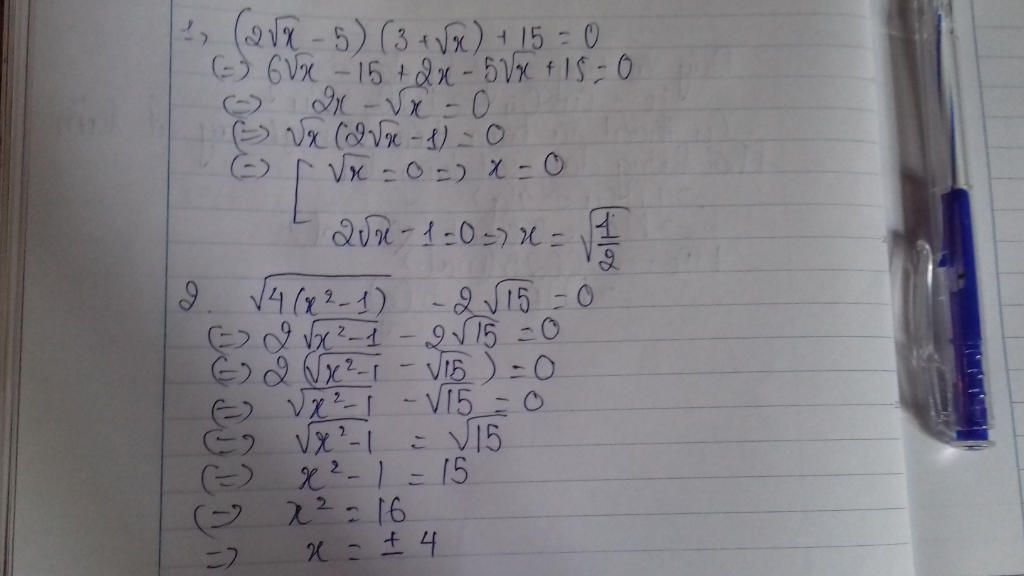 1, (2√x - 5) (3 + √x) + 15 = 0
(=) 6√x - 15 + 2x - 5√x + 15 = 0
(=) 2x - √x = 0
(=) √x (2√x - 1) = 0
(=) [ √x = 0 => x = 0
2√x - 1 = 0 => x = √(1/2)
2. √(4(x² - 1)) - 2√15 = 0
(=) 2√(x² - 1) - 2√15 = 0
(=) 2(√(x² - 1) - √15) = 0
(=) √(x² - 1) - √15 = 0
(=) √(x² - 1) = √15
(=) x² - 1 = 15
(=) x² = 16
=> x = ± 4